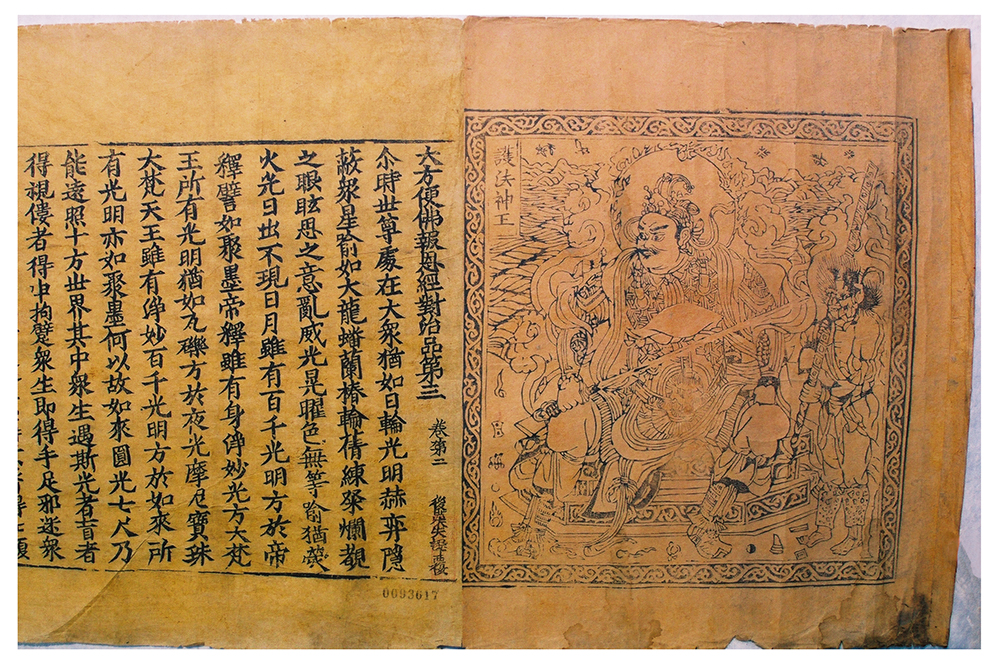 護法神王
大方便佛報恩經對治品第三 卷第二
尒時世尊處在大衆猶如日輪光明赫弈隱
蔽衆星喻如大龍蟠蘭椿輪蒨練粲爛覩
之眼眩思之意亂威光晃曜色無等喻猶螢
火光日出不現日月雖有百千光明方於帝
釋譬如聚墨帝釋雖有身淨妙光方大梵
王所有光明猶如瓦礫方於夜光摩尼寶珠
大梵天王雖有淨妙百千光明方於如來所
有光明亦如聚墨何以故如來圓光七尺乃
能遠照十方世界其中衆生遇斯光者盲者
得視僂者得申拘躄衆生即得手足邪迷衆
0093617